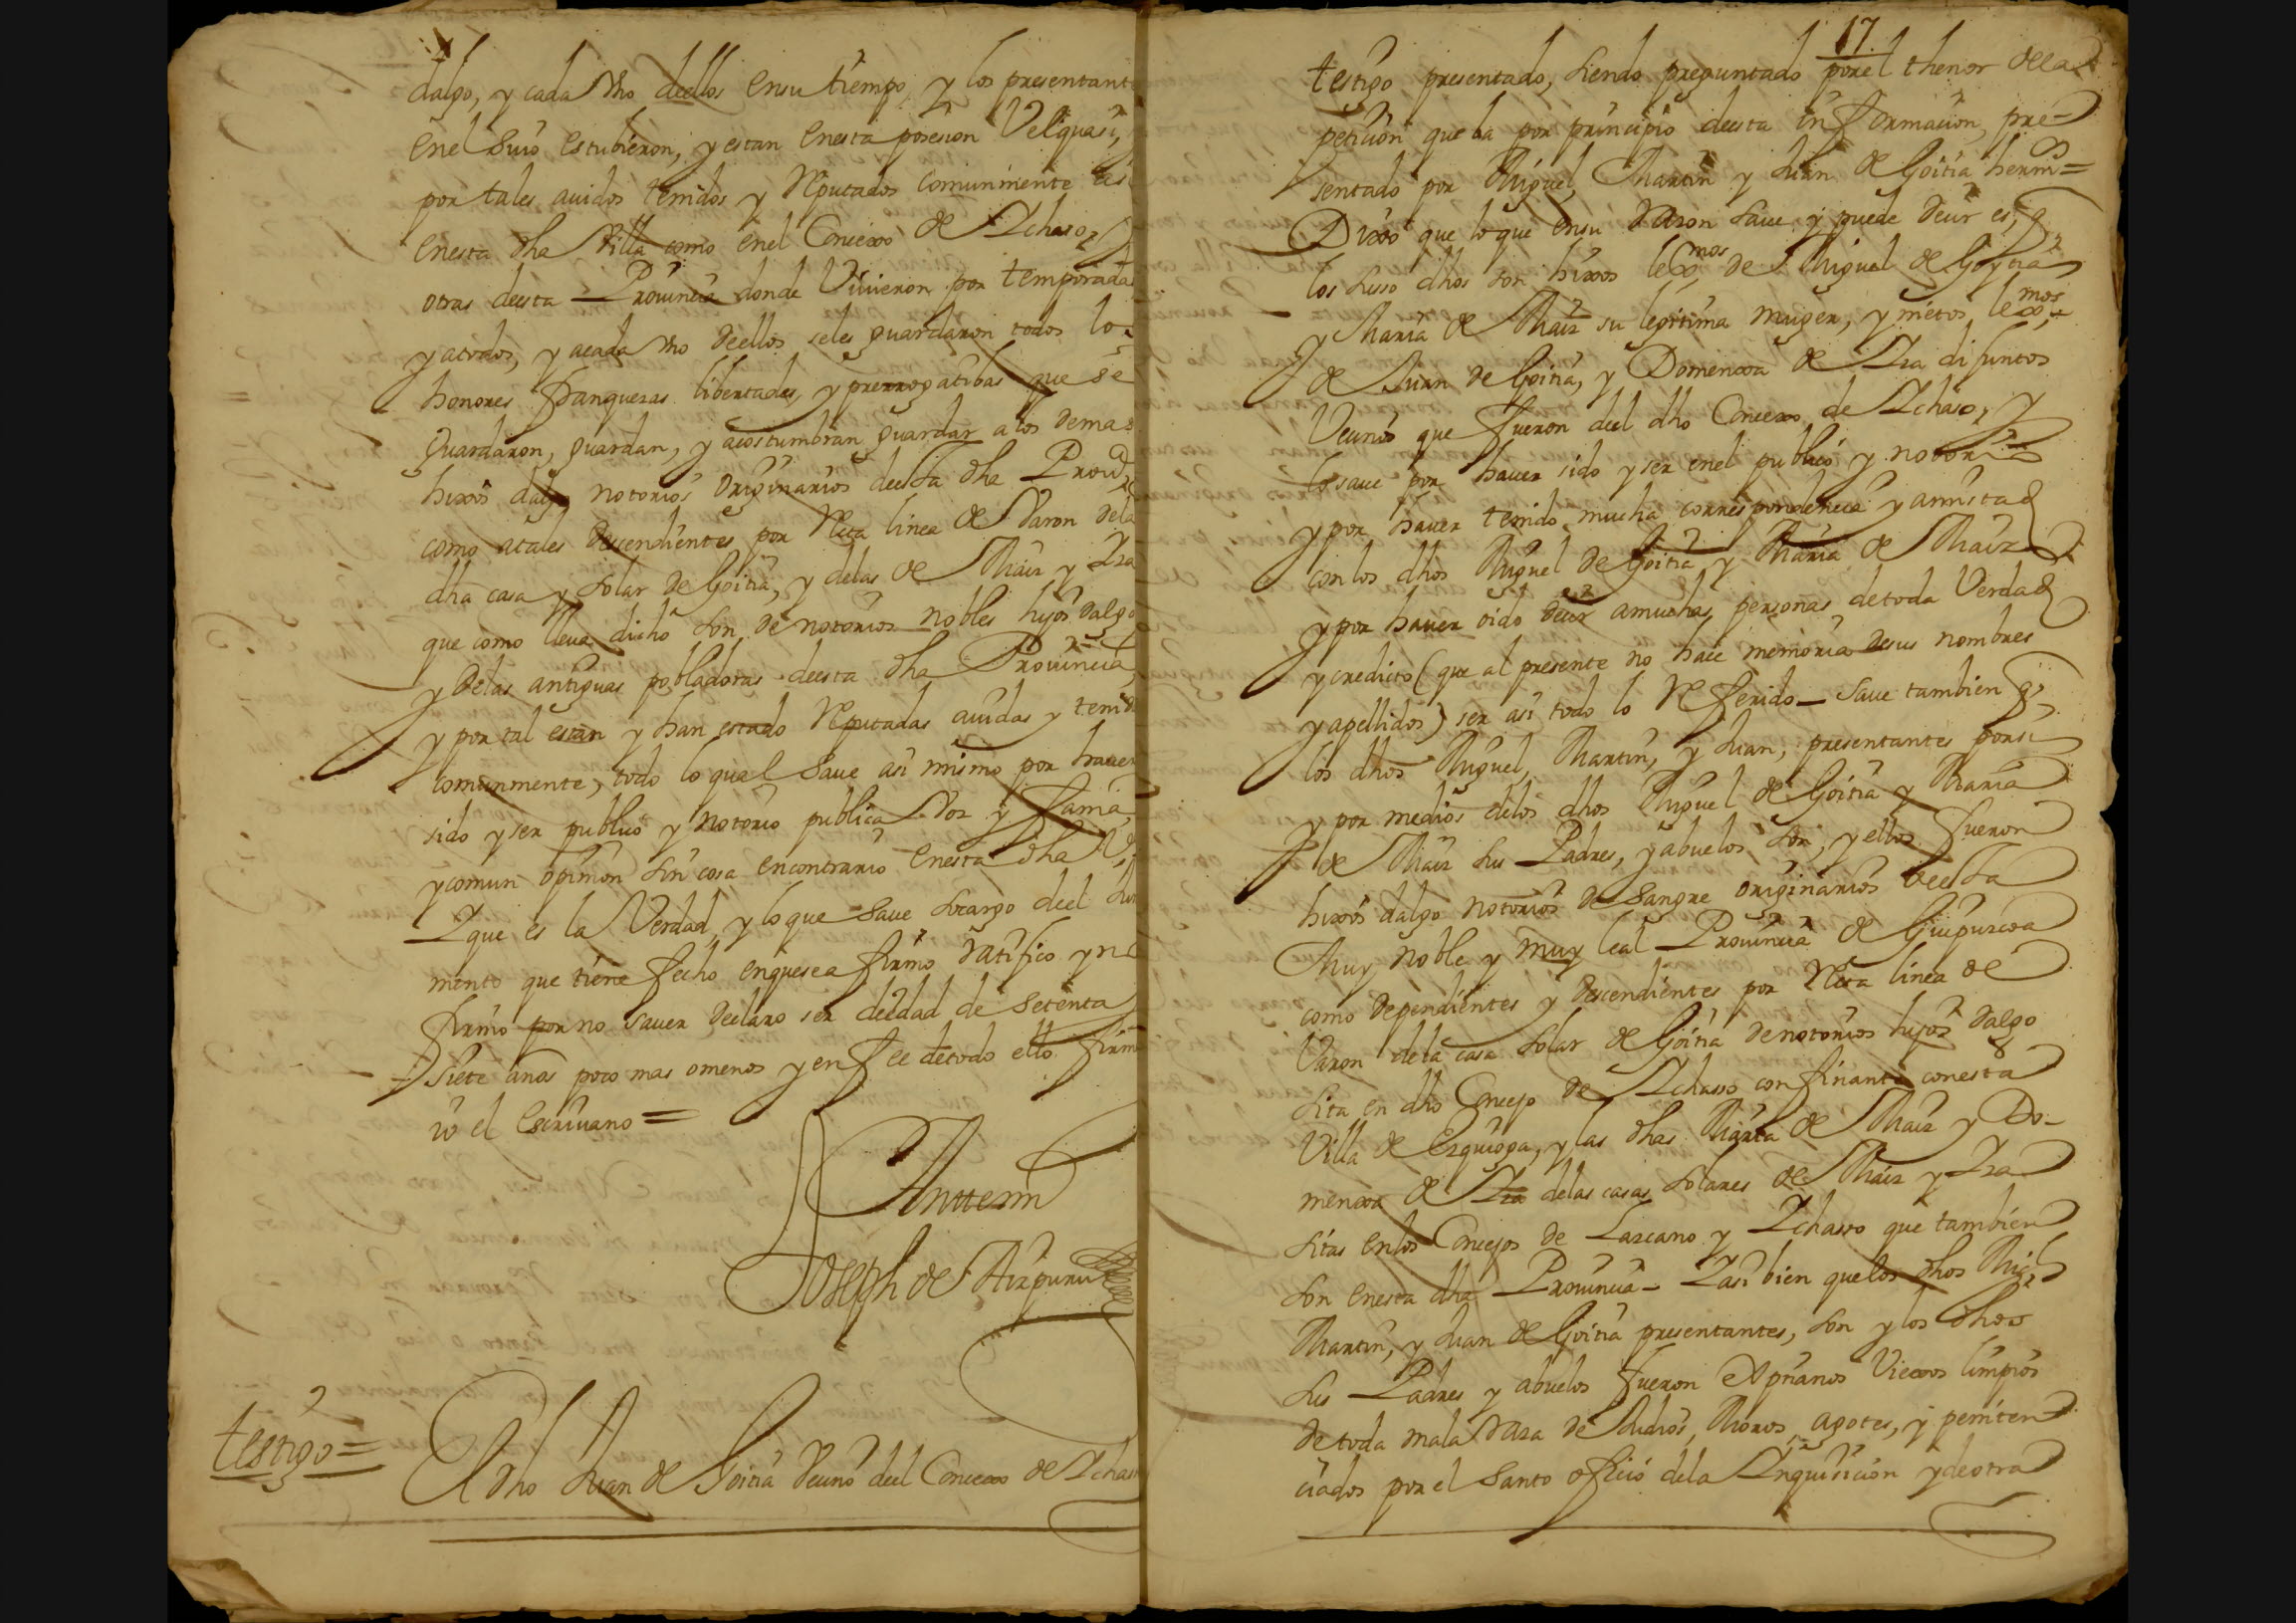 dalgo, y cada Vno deellos ensu tiempo, y los presentant
enel Suio estubieron, y estan enesta posesion Velquasi,
por tales auidos tenidos y Reputados comunmente asi
enesta dha Villa como enel Concexo de Ychaso, y
otras deesta Prouincia donde Viuieron por temporadas
y atodos, y acada Vno deellos seles guardaron todos lo
honores franquezas libertades, y prerrogatibas que se
guardaron, guardan, y acostumbran guardar a los demas
hixos dalgo notorios originarios deesta dha Prou.ª
como atales descendientes por Recta linea de Varon dela
dha casa y solar de Goitia, y delas de Maiz y Yza
que como lleua dicho son de notorios nobles hijos dalgo
y delas antiguas pobladoras deesta dha Prouincia,
y por tal estan y han estado Reputadas auidas y tenid
comunmente, todo lo qual Saue asi mismo por hauer
sido y ser publico y notorio publica Voz y fama,
y comun opinion sin cosa encontrario enesta dha V.ª
Y que es la Verdad, y lo que Saue socargo deel Jur
mento que tiene fecho enquesea firmo ratifico y no
firmo por no sauer declaro ser deedad de setenta y
siete años poco mas omenos y en fee detodo ello firm
io el Escriuano =
Anttemi
Joseph de Aizpuru
testigo =
El dho Juan de Goitia Vecino deel Concexo de Ychaso
17
testigo presentado, siendo preguntado porel thenor dela
peticion que ba por principio deesta informacion, pre=
sentado por Miguel, Martin y Juan de Goitia herm.ºs=
Dixo que lo que ensu razon saue y puede decir es, q.e
los susso dhos son hixos lexmos de Miguel de Goytia
y Maria de Maiz su legitima muger, y nietos lexmos
de Juan de Goitia, y Domenxa de Yza difuntos
Vecinos que fueron deel dho Concexo de Ychaso, y
lo saue por hauer sido y ser enel publico y notorio
y por hauer tenido mucha correspondencia y amistad
con los dhos Miguel de Goitia y Maria de Maiz
y por hauer oido decir amuchas personas detoda Verdad
y credito (que al presente no hace memoria desus nombres
y apellidos) ser asi todo lo Referido_ Saue tambien q.e
los dhos Miguel, Martin, y Juan, presentantes porsi
y por medios delos dhos Miguel de Goitia y Maria
de Maiz sus Padres, y abuelos son, y ellos fueron
hixos dalgo notorios de Sangre originarios deesta
Muy noble y muy leal Prouincia de Guipuzcoa
como dependientes y descendientes por Recta linea de
Varon dela casa solar de Goitia denotorios hijos dalgo
sita en dho Concejo de Ychasso confinante conesta
Villa de Ezquioga, y las dhas Maria de Maiz y Do-
menxa de Yza delas casas solares de Maiz y Yza
sitas enlos Concejos de Lazcano y Ychasso que tambien
son enesta dha Prouincia - Y asi bien quelos dhos Mig.l
Martin, y Juan de Goitia presentantes, son y los dhos
sus Padres y abuelos fueron Xpianos Viexos limpios
de toda mala raza de Judios, Moros, agotes, y peniten
ciados por el Santo oficio dela Ynquisicion y deotra